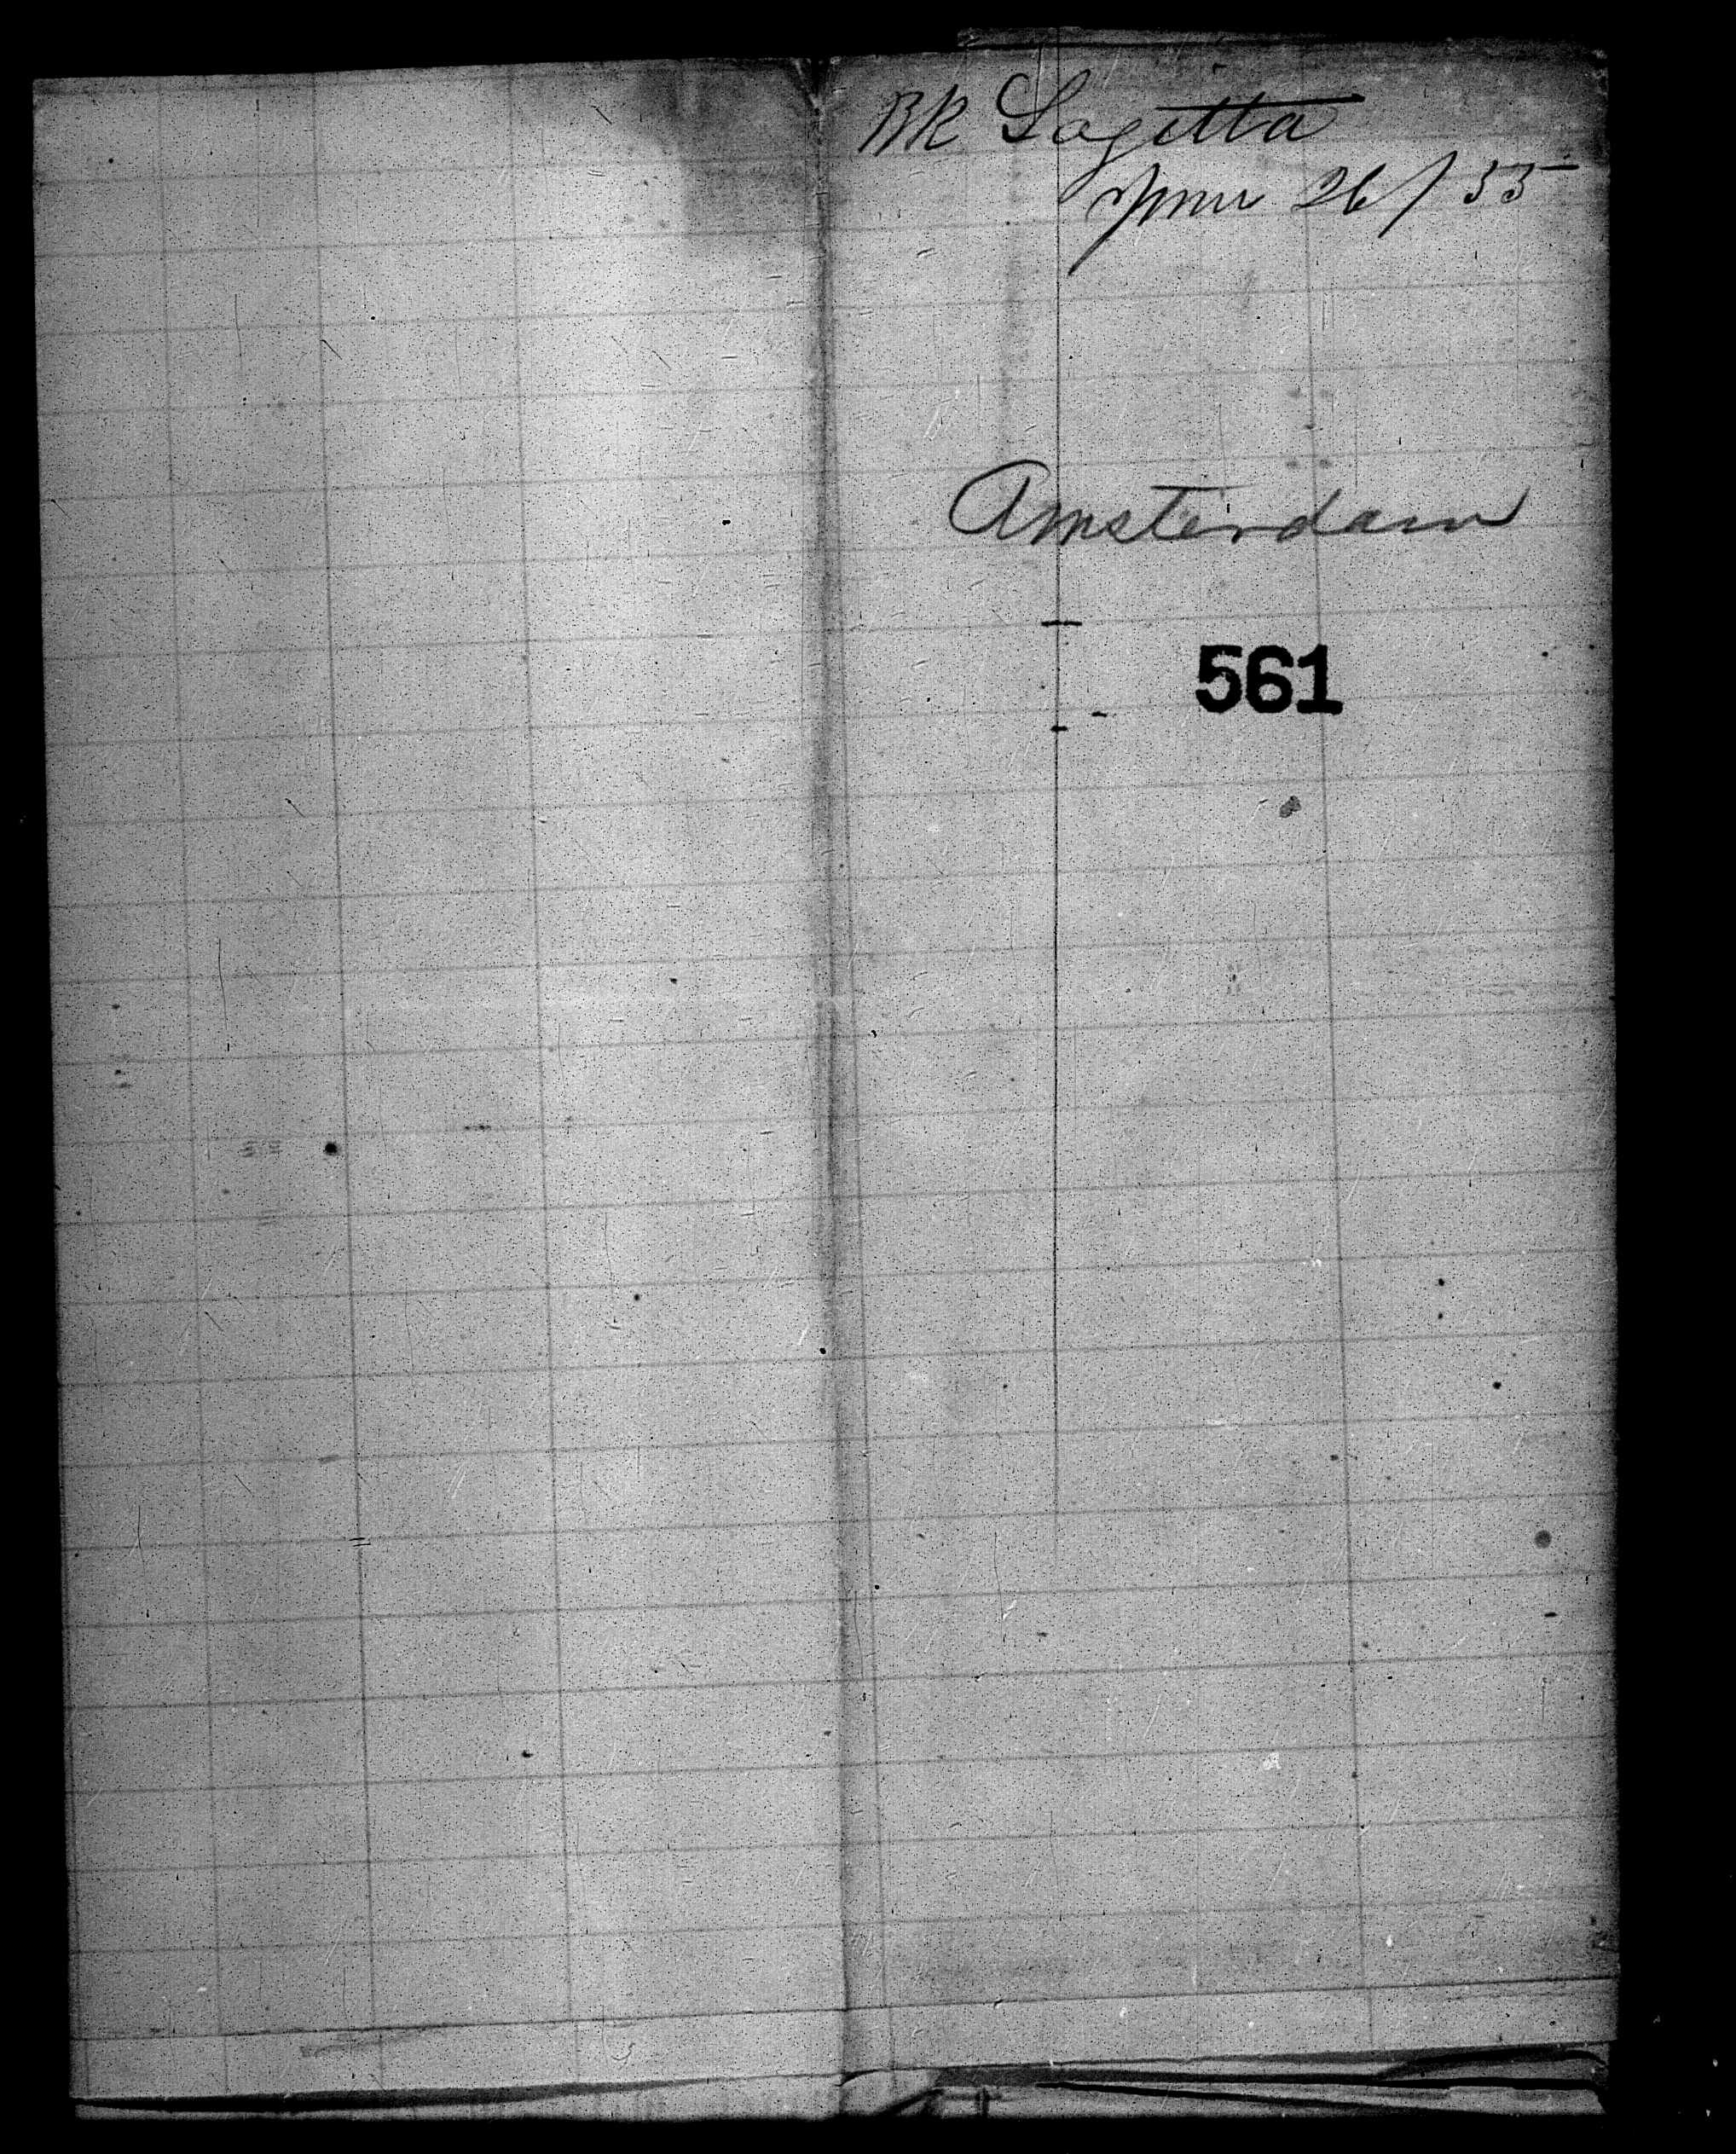 BK Sagitta
June 26/55
Amsterdam
561